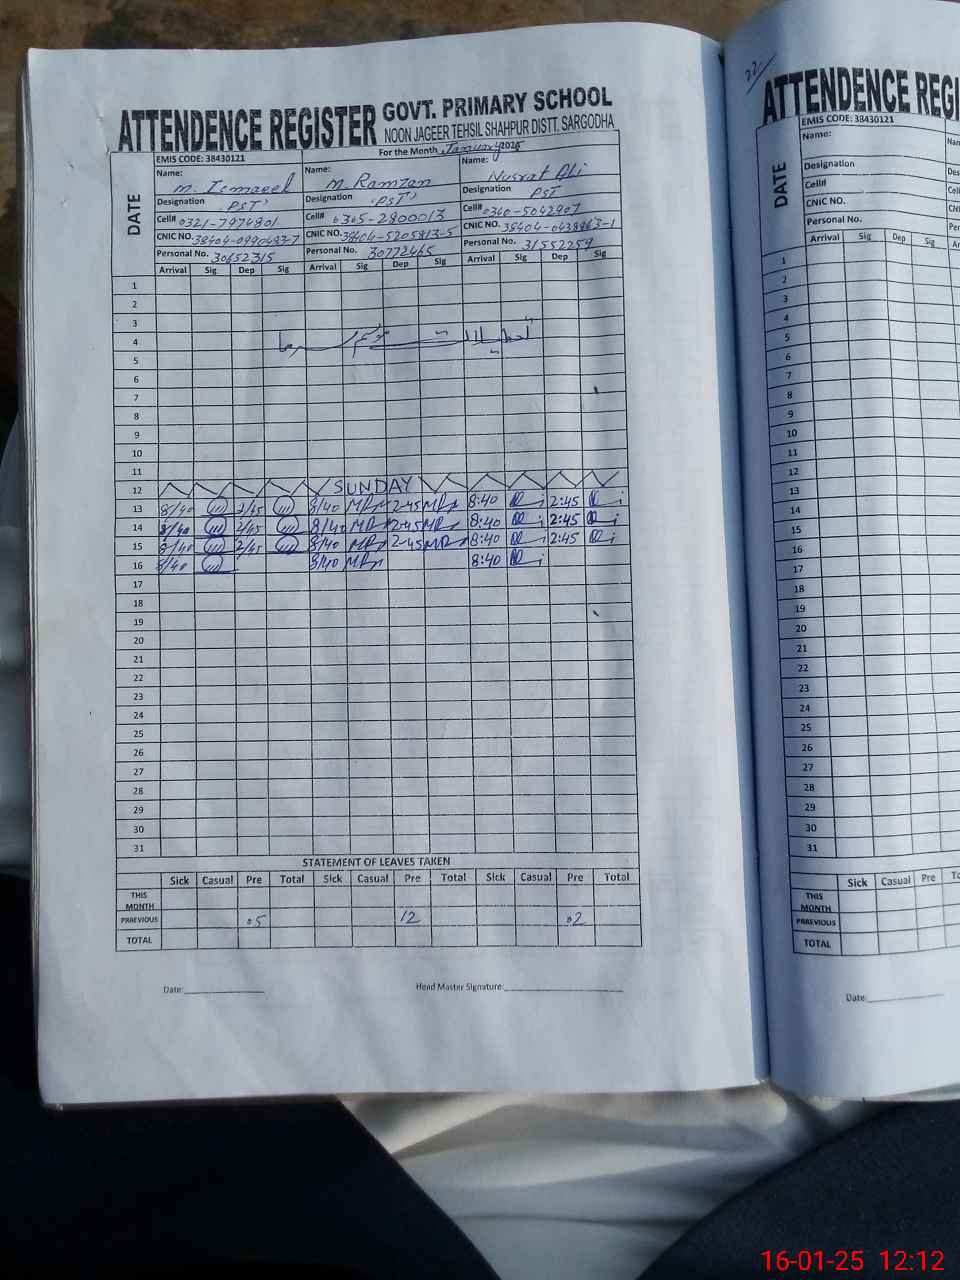 ATTENDENCE REGISTER GOVT. PRIMARY SCHOOL
NOON JAGEER TEHSIL SHAHPUR DISTT. SARGODHA
DATE
EMIS CODE: 38430121 For the Month January 2025
Name: M. Ismaeel Name: M. Ramzan Name: Nusrat Ali
Designation PST Designation PST Designation PST
Cell# 0321-7974801 Cell# 0305-2800013 Cell# 0340-5042907
CNIC NO. CNIC NO. 38404-5205813-5 CNIC NO.
Personal No. 30652315 Personal No. 30772465 Personal No. 31552259
Arrival Sig Dep Sig Arrival Sig Dep Sig Arrival Sig Dep Sig
1
2
3
4
5
6
7
8
9
10
11
12 SUNDAY
13 8/40 2/45 8/40 2-45 8:40 2:45
14 8/40 2/45 8/40 2-45 8:40 2:45
15 8/40 2/45 8/40 2-45 8:40 2:45
16 8/40 8/40 8:40
17
18
19
20
21
22
23
24
25
26
27
28
29
30
31
STATEMENT OF LEAVES TAKEN
Sick Casual Pre Total Sick Casual Pre Total Sick Casual Pre Total
THIS MONTH
PRAEVIOUS .5 12 .2
TOTAL
Date: Head Master Signature:
22
ATTENDENCE REGI
DATE
EMIS CODE: 38430121
Name:
Designation
Cell#
CNIC NO.
Personal No.
Arrival Sig Dep Sig
1
2
3
4
5
6
7
8
9
10
11
12
13
14
15
16
17
18
19
20
21
22
23
24
25
26
27
28
29
30
31
Sick Casual Pre To
THIS MONTH
PRAEVIOUS
TOTAL
Date:
16-01-25 12:12